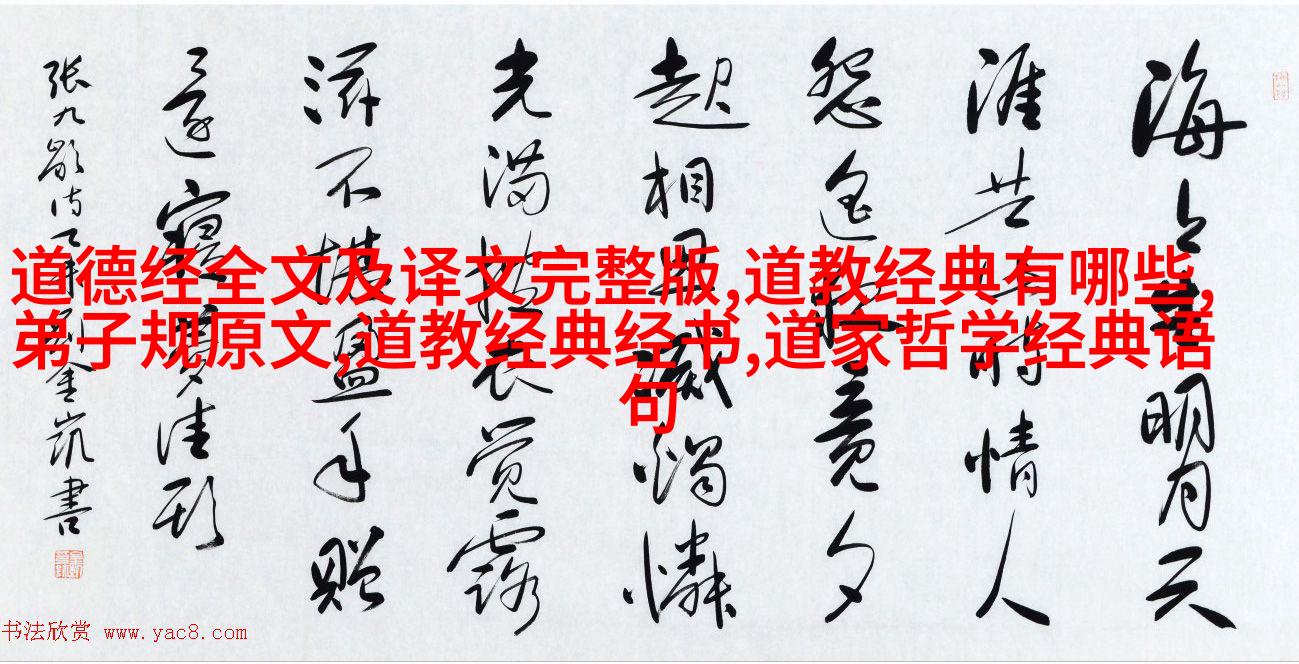 道德经全文及译文完整版,道教经典有哪些,
弟子规原文,道教经典经书,道家哲学经典语
句
海上生明月天
涯共此時情人
怨遥夜竟夕
起相思滅燭憐
光满披衣觉露
滋不堪盈手赠
還寝夢佳期
張九龄诗 金凯書
书法欣赏 www.yac8.com